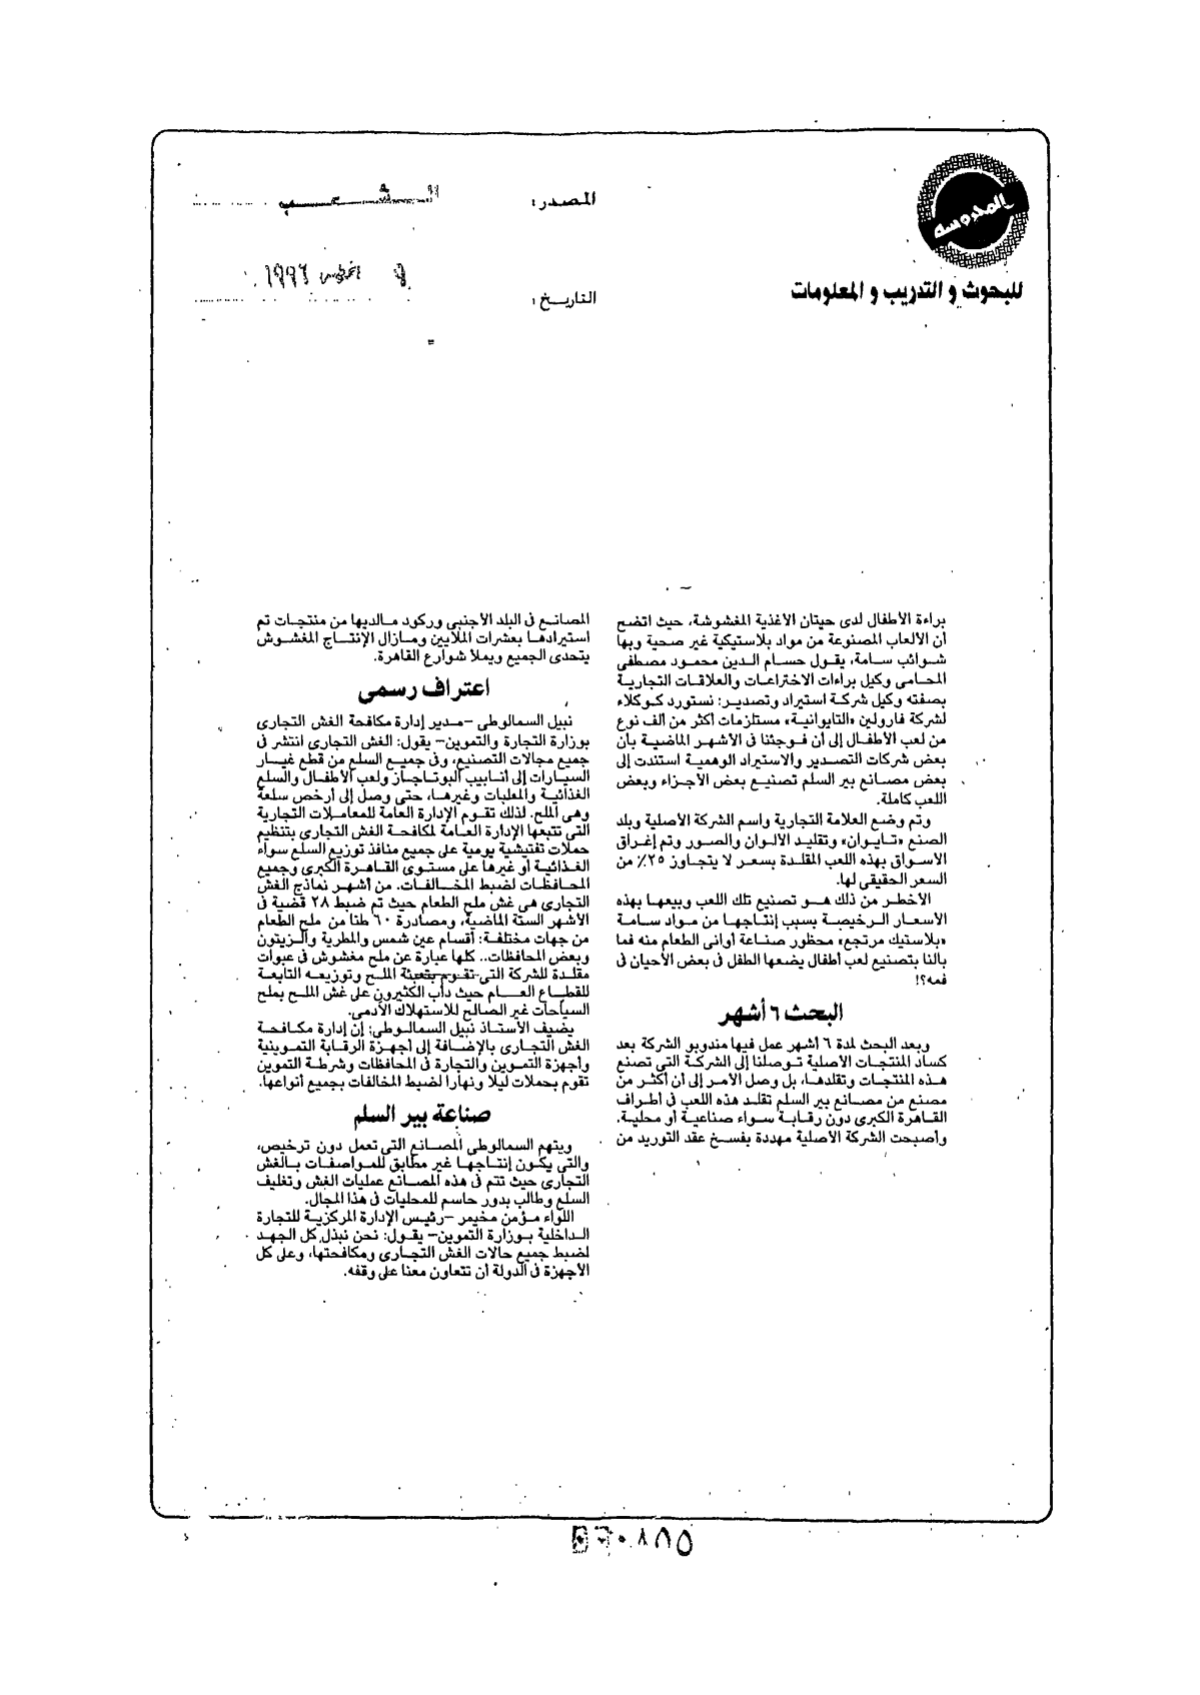 المحروسه
للبحوث و التدريب و المعلومات
المصدر: الشعب
التاريخ: أغسطس ١٩٩٦
براءة الأطفال لدى حيتان الأغذية المغشوشة، حيث اتضح
أن الألعاب المصنوعة من مواد بلاستيكية غير صحية وبها
شوائب سامة، يقول حسام الدين محمود مصطفى
المحامى وكيل براءات الاختراعات والعلاقات التجارية
بصفته وكيل شركة استيراد وتصدير: نستورد كوكلاء
لشركة فارولين «التايوانية» مستلزمات أكثر من ألف نوع
من لعب الأطفال إلى أن فوجئنا فى الأشهر الماضية بأن
بعض شركات التصدير والاستيراد الوهمية استندت إلى
بعض مصانع بير السلم تصنيع بعض الأجزاء وبعض
اللعب كاملة.
وتم وضع العلامة التجارية واسم الشركة الأصلية وبلد
الصنع «تايوان» وتقليد الألوان والصور وتم إغراق
الأسواق بهذه اللعب المقلدة بسعر لا يتجاوز ٢٥٪ من
السعر الحقيقى لها.
الأخطر من ذلك هو تصنيع تلك اللعب وبيعها بهذه
الأسعار الرخيصة بسبب إنتاجها من مواد سامة
«بلاستيك مرتجع» محظور صناعة أوانى الطعام منه فما
بالنا بتصنيع لعب أطفال يضعها الطفل فى بعض الأحيان فى
فمه؟!
البحث ٦ أشهر
وبعد البحث لمدة ٦ أشهر عمل فيها مندوبو الشركة بعد
كساد المنتجات الأصلية توصلنا إلى الشركة التى تصنع
هذه المنتجات وتقلدها، بل وصل الأمر إلى أن أكثر من
مصنع من مصانع بير السلم تقلد هذه اللعب فى أطراف
القاهرة الكبرى دون رقابة سواء صناعية أو محلية.
وأصبحت الشركة الأصلية مهددة بفسخ عقد التوريد من
المصانع فى البلد الأجنبى وركود مالديها من منتجات تم
استيرادها بعشرات الملايين ومازال الإنتاج المغشوش
يتحدى الجميع ويملأ شوارع القاهرة.
اعتراف رسمى
نبيل السمالوطى -مدير إدارة مكافحة الغش التجارى
بوزارة التجارة والتموين- يقول: الغش التجارى انتشر فى
جميع مجالات التصنيع، وفى جميع السلع من قطع غيار
السيارات إلى أنابيب البوتاجاز ولعب الأطفال والسلع
الغذائية والمعلبات وغيرها، حتى وصل إلى أرخص سلعة
وهى الملح. لذلك تقوم الإدارة العامة للمعاملات التجارية
التى تتبعها الإدارة العامة لمكافحة الغش التجارى بتنظيم
حملات تفتيشية يومية على جميع منافذ توزيع السلع سواء
الغذائية أو غيرها على مستوى القاهرة الكبرى وجميع
المحافظات لضبط المخالفات. من أشهر نماذج الغش
التجارى هى غش ملح الطعام حيث تم ضبط ٢٨ قضية فى
الأشهر الستة الماضية، ومصادرة ٦٠ طنا من ملح الطعام
من جهات مختلفة: أقسام عين شمس والمطرية والزيتون
وبعض المحافظات.. كلها عبارة عن ملح مغشوش فى عبوات
مقلدة للشركة التى تقوم بتعبئة الملح وتوزيعه التابعة
للقطاع العام حيث دأب الكثيرون على غش الملح بملح
السياحات غير الصالح للاستهلاك الآدمى.
يضيف الأستاذ نبيل السمالوطى: إن إدارة مكافحة
الغش التجارى بالإضافة إلى أجهزة الرقابة التموينية
وأجهزة التموين والتجارة فى المحافظات وشرطة التموين
تقوم بحملات ليلا ونهارا لضبط المخالفات بجميع أنواعها.
صناعة بير السلم
ويتهم السمالوطى المصانع التى تعمل دون ترخيص،
والتى يكون إنتاجها غير مطابق للمواصفات بالغش
التجارى حيث تتم فى هذه المصانع عمليات الغش وتغليف
السلع وطالب بدور حاسم للمحليات فى هذا المجال.
اللواء مؤمن مخيمر -رئيس الإدارة المركزية للتجارة
الداخلية بوزارة التموين- يقول: نحن نبذل كل الجهد
لضبط جميع حالات الغش التجارى ومكافحتها، وعلى كل
الأجهزة فى الدولة أن تتعاون معنا على وقفه.